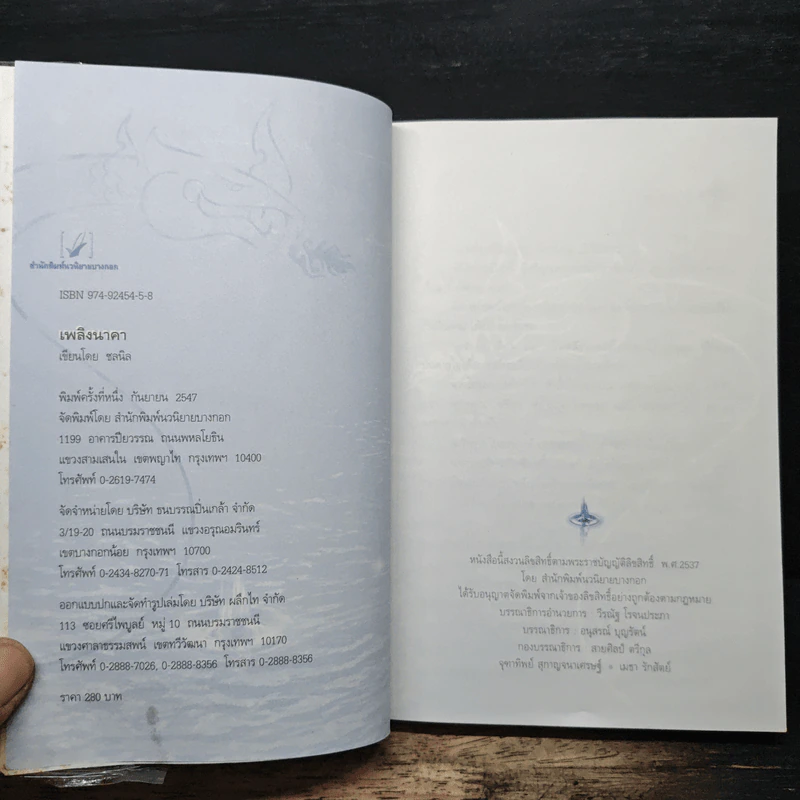 สำนักพิมพ์นวนิยายบางกอก
ISBN 974-92454-5-8
เพลิงนาคา
เขียนโดย ชลนิล
พิมพ์ครั้งที่หนึ่ง กันยายน 2547
จัดพิมพ์โดย สำนักพิมพ์นวนิยายบางกอก
1199 อาคารปิยวรรณ ถนนพหลโยธิน
แขวงสามเสนใน เขตพญาไท กรุงเทพฯ 10400
โทรศัพท์ 0-2619-7474
จัดจำหน่ายโดย บริษัท ธนบรรณปิ่นเกล้า จำกัด
3/19-20 ถนนบรมราชชนนี แขวงอรุณอมรินทร์
เขตบางกอกน้อย กรุงเทพฯ 10700
โทรศัพท์ 0-2434-8270-71 โทรสาร 0-2424-8512
ออกแบบปกและจัดทำรูปเล่มโดย บริษัท ผลึกไท จำกัด
113 ซอยศรีไพบูลย์ หมู่ 10 ถนนบรมราชชนนี
แขวงศาลาธรรมสพน์ เขตทวีวัฒนา กรุงเทพฯ 10170
โทรศัพท์ 0-2888-7026, 0-2888-8356 โทรสาร 0-2888-8356
ราคา 280 บาท
หนังสือนี้สงวนลิขสิทธิ์ตามพระราชบัญญัติลิขสิทธิ์ พ.ศ.2537
โดย สำนักพิมพ์นวนิยายบางกอก
ได้รับอนุญาตจัดพิมพ์จากเจ้าของลิขสิทธิ์อย่างถูกต้องตามกฎหมาย
บรรณาธิการอำนวยการ : วีรณัฐ โรจนประภา
บรรณาธิการ : อนุสรณ์ บุญรัตน์
กองบรรณาธิการ : สายศิลป์ ตรีกุล
จุฑาทิพย์ สุกาญจนาเศรษฐ์ • เมธา รักสัตย์